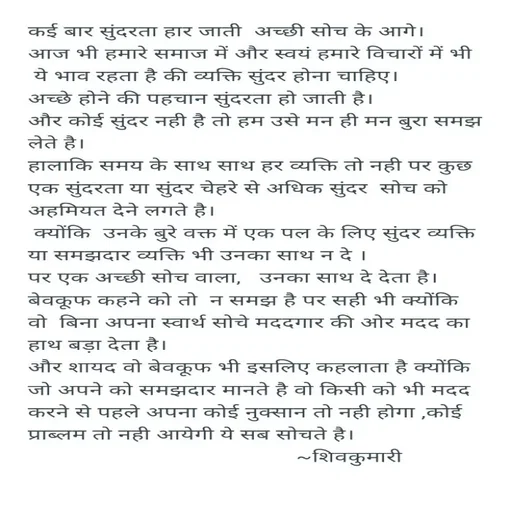 कई बार सुंदरता हार जाती अच्छी सोच के आगे।
आज भी हमारे समाज में और स्वयं हमारे विचारों में भी
ये भाव रहता है की व्यक्ति सुंदर होना चाहिए।
अच्छे होने की पहचान सुंदरता हो जाती है।
और कोई सुंदर नही है तो हम उसे मन ही मन बुरा समझ
लेते है।
हालाकि समय के साथ साथ हर व्यक्ति तो नही पर कुछ
एक सुंदरता या सुंदर चेहरे से अधिक सुंदर सोच को
अहमियत देने लगते है।
क्योंकि उनके बुरे वक्त में एक पल के लिए सुंदर व्यक्ति
या समझदार व्यक्ति भी उनका साथ न दे ।
पर एक अच्छी सोच वाला, उनका साथ दे देता है।
बेवकूफ कहने को तो न समझ है पर सही भी क्योंकि
वो बिना अपना स्वार्थ सोचे मददगार की ओर मदद का
हाथ बड़ा देता है।
और शायद वो बेवकूफ भी इसलिए कहलाता है क्योंकि
जो अपने को समझदार मानते है वो किसी को भी मदद
करने से पहले अपना कोई नुक्सान तो नही होगा ,कोई
प्राब्लम तो नही आयेगी ये सब सोचते है।
~शिवकुमारी